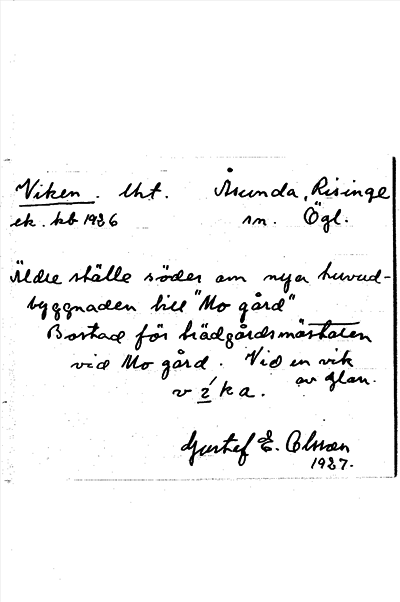 Viken. lht. Åsunda, Risinge
ek. kb 1926 sn. Ögl.
Äldre ställe söder om nya huvud-
byggnaden till "Mo gård"
Bostad för trädgårdsmästaren
vid Mo gård. Vid en vik
av Glan.
v í k a.
Gustef E. Olsson
1927.